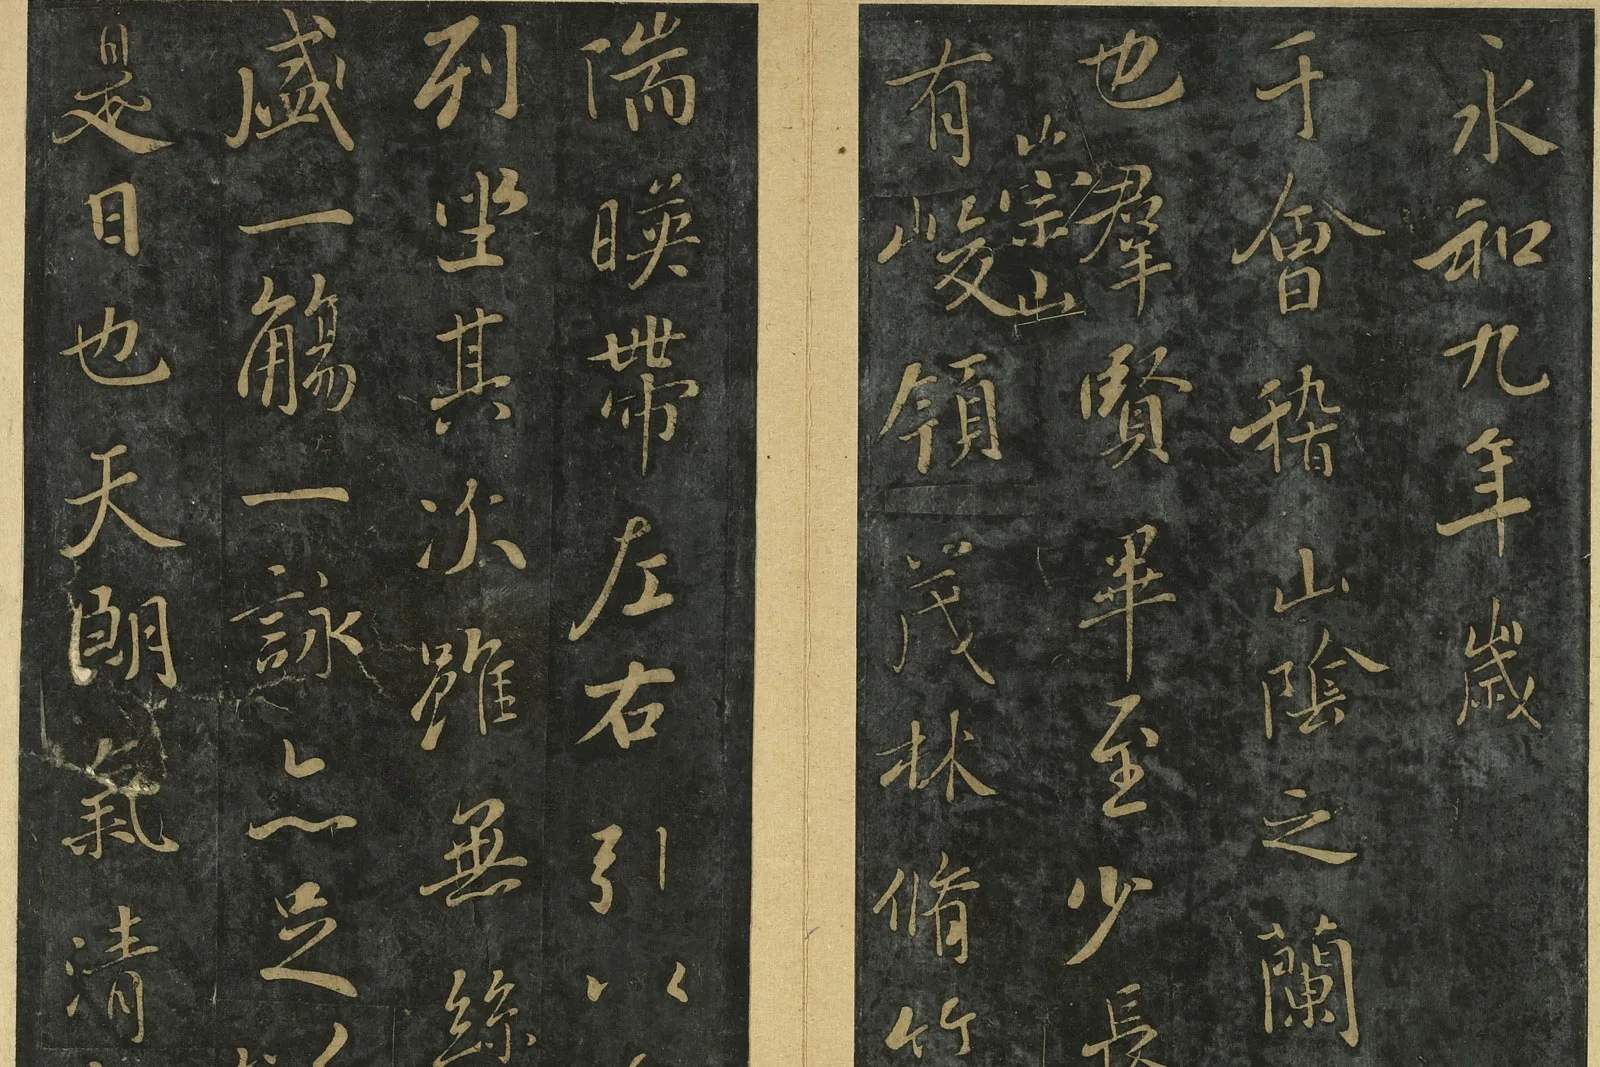 永和九年歲
于會稽山陰之蘭
也羣賢畢至少長
崇山
有峻領茂林脩竹
湍暎帶左右引以
列坐其次雖無絲
盛一觴一詠亦足
是日也天朗氣清